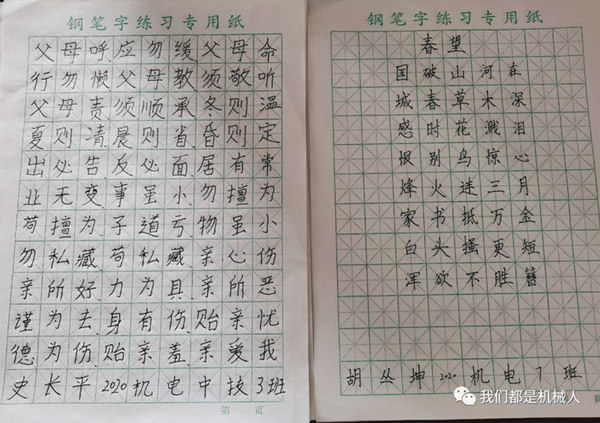 钢笔字练习专用纸
父母呼应勿缓父母命
行勿懒父母教须敬听
父母责须顺承冬则温
夏则凊晨则省昏则定
出必告反必面居有常
业无变事虽小勿擅为
苟擅为子道亏物虽小
勿私藏苟私藏亲心伤
亲所好力为具亲所恶
谨为去身有伤贻亲忧
德为伤贻亲羞亲爱我
史长平2020机电中技3班
第 页
钢笔字练习专用纸
春望
国破山河在
城春草木深
感时花溅泪
恨别鸟惊心
烽火连三月
家书抵万金
白头搔更短
浑欲不胜簪
胡丛坤2020机电7班
页
我们都是机械人